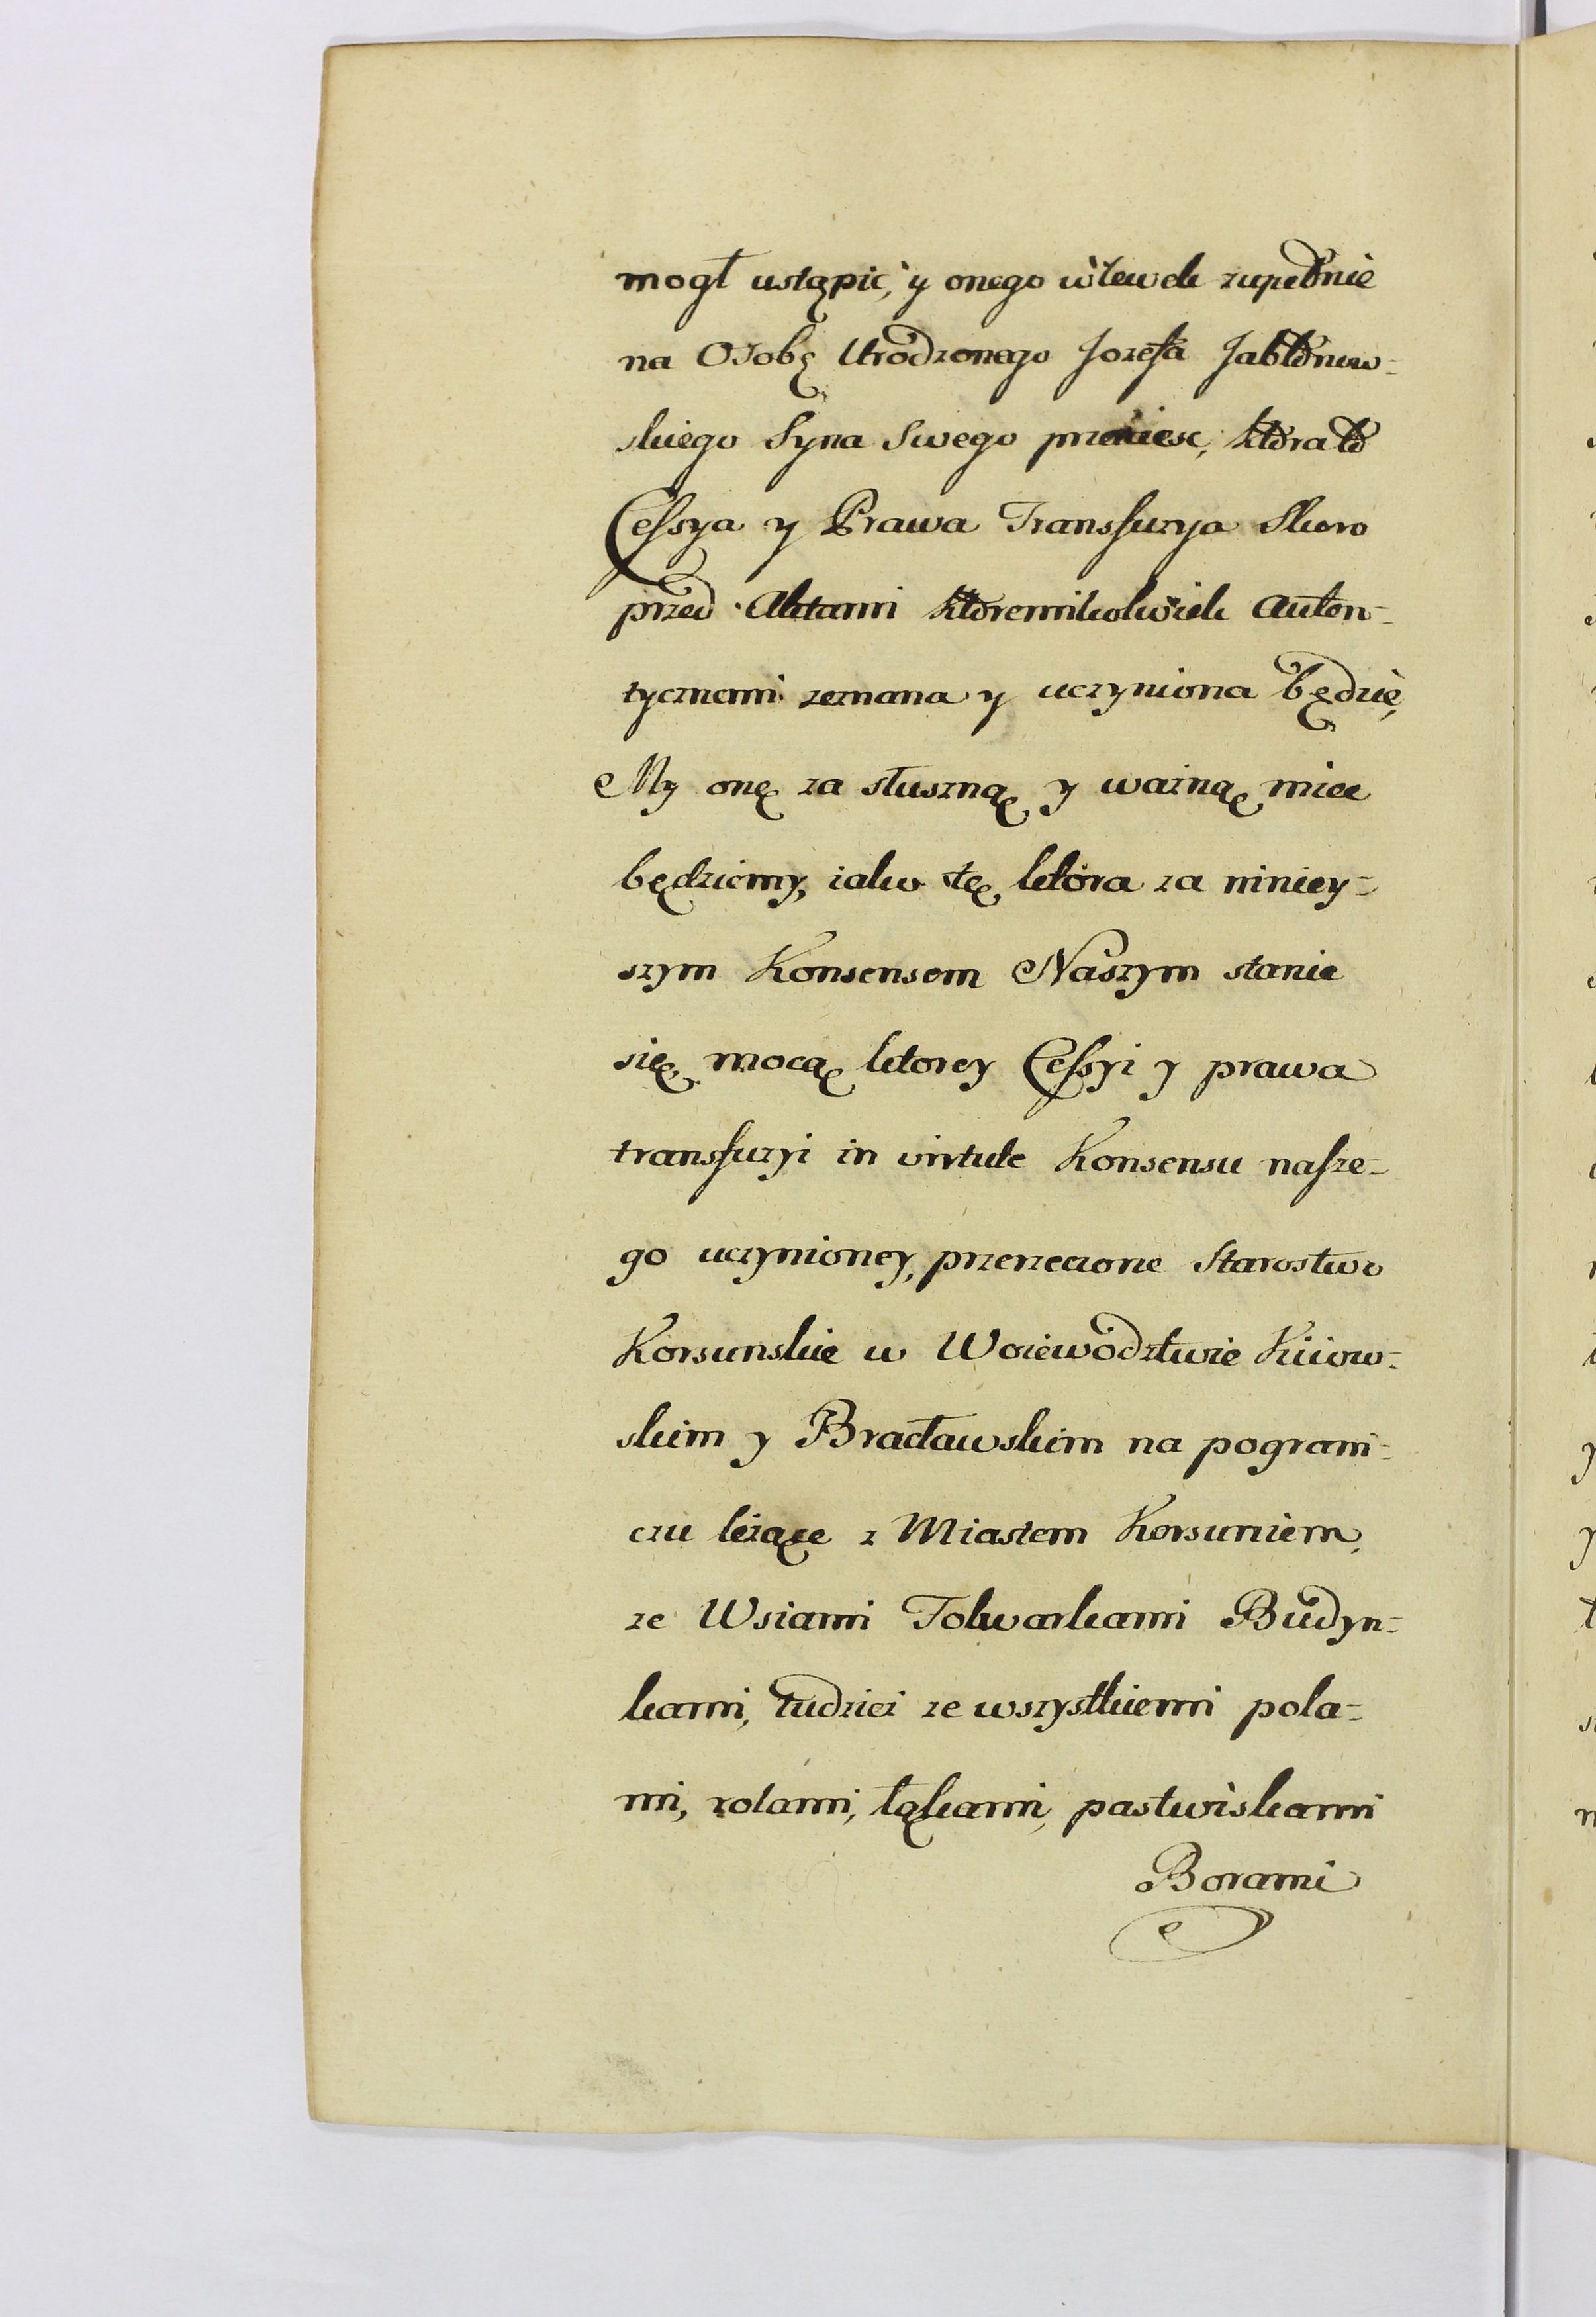 mogł ustąpić, y onego w lewek zupełnie
na Osobę Urodzonego Jozefa Jabłonow-
skiego Syna Swego przeniesc, ktora to
Cessya y Prawa Transfuzya Skoro
przed Aktami ktoremikolwiek Auten-
tycznemi zeznana y uczyniona będzie,
My onę za słuszną y ważną miec
będziemy, iako tę ktora za niniey-
szym Konsensem Naszym stanie
się, mocą ktorey Cessyi y prawa
transfuzyi in virtute Konsensu nasze-
go uczynioney, przerzeczone Starostwo
Korsunskie w Woiewodztwie Kiiow-
skim y Bracławskim na pograni-
czu leżące z Miastem Korsuniem,
ze Wsiami Folwarkami Budyn-
kami, tudzież ze wszystkiemi pola-
mi, rolami, łąkami, pastwiskami
Borami